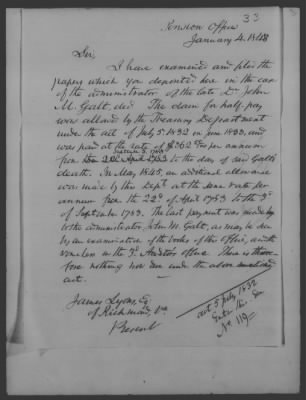 33
Pension Office
January 4. 1848
Sir,
I have examined and filed the
papers which you deposited here in the case
of the administrator of the late Dr John
M. Galt decd. The claim for half pay
was allowed by the Treasury Department
under the act of July 5th 1832 in June 1833, and
was paid at the rate of $362 per annum
September 3, 1783
from the 22d April 1783 to the day of said Galt's
death. In May 1845, an additional allowance
was made by this Dept. at the same rate per
annum from the 22d of April 1783 to the 3d
of September 1783. The last payment was made by
to the administrator, John M. Galt, as may be seen
by an examination of the books of this Office, and the
vouchers in the 3d Auditor's office. There is there-
fore nothing now due under the above mentioned
act.
James Lyons, Esq
of Richmond, Va
Present
act 5 July, 1832
No. 119